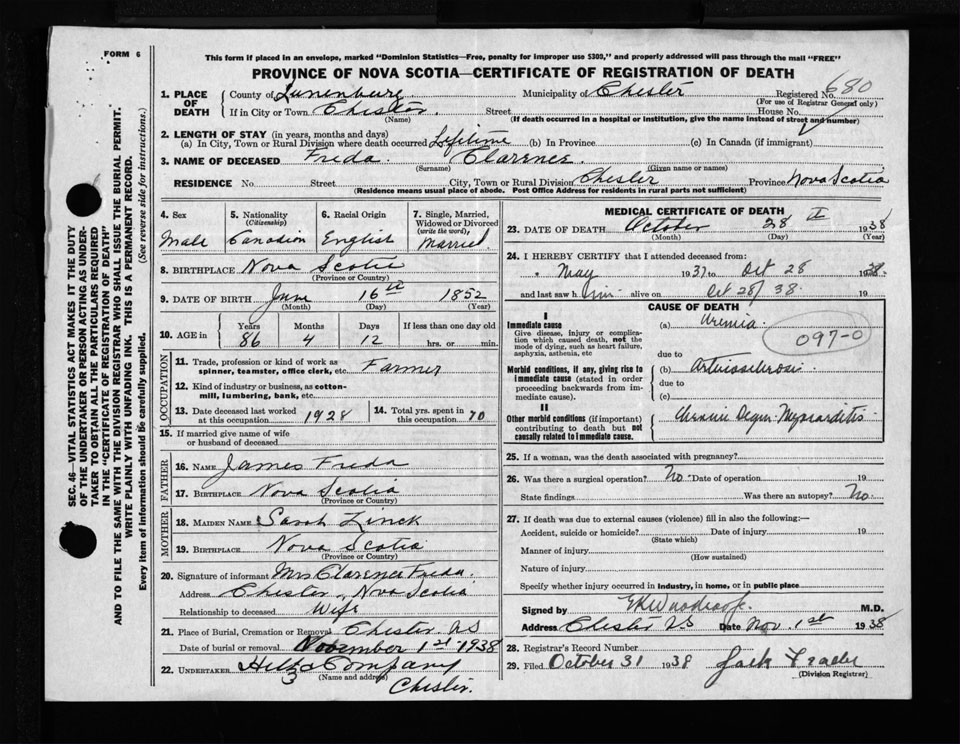 FORM 6
This form if placed in an envelope, marked "Dominion Statistics—Free, penalty for improper use $300," and properly addressed will pass through the mail "FREE"
PROVINCE OF NOVA SCOTIA—CERTIFICATE OF REGISTRATION OF DEATH
680
1. PLACE OF DEATH
County of Lunenburg Municipality of Chester Registered No.
(For use of Registrar General only)
If in City or Town Chester. Street House No.
(Name) (If death occurred in a hospital or institution, give the name instead of street and number)
2. LENGTH OF STAY (in years, months and days)
(a) In City, Town or Rural Division where death occurred Lifetime (b) In Province (c) In Canada (if immigrant)
3. NAME OF DECEASED Freda. Clarence.
(Surname) (Given name or names)
RESIDENCE No. Street City, Town or Rural Division Chester Province Nova Scotia
(Residence means usual place of abode. Post Office Address for residents in rural parts not sufficient)
SEC. 46—VITAL STATISTICS ACT MAKES IT THE DUTY
OF THE UNDERTAKER OR PERSON ACTING AS UNDER-
TAKER TO OBTAIN ALL THE PARTICULARS REQUIRED
IN THE "CERTIFICATE OF REGISTRATION OF DEATH"
AND TO FILE THE SAME WITH THE DIVISION REGISTRAR WHO SHALL ISSUE THE BURIAL PERMIT.
WRITE PLAINLY WITH UNFADING INK. THIS IS A PERMANENT RECORD.
Every item of information should be carefully supplied. (See reverse side for instructions.)
4. Sex 5. Nationality (Citizenship) 6. Racial Origin 7. Single, Married, Widowed or Divorced (write the word)
Male Canadian English Married
8. BIRTHPLACE Nova Scotia
(Province or Country)
9. DATE OF BIRTH June 16th 1852
(Month) (Day) (Year)
10. AGE in Years Months Days If less than one day old
86 4 12 hrs. or min.
OCCUPATION
11. Trade, profession or kind of work as
spinner, teamster, office clerk, etc. Farmer
12. Kind of industry or business, as cotton-
mill, lumbering, bank, etc.
13. Date deceased last worked
at this occupation 1928
14. Total yrs. spent in
this occupation 70
15. If married give name of wife
or husband of deceased
FATHER
16. NAME James Freda
17. BIRTHPLACE Nova Scotia
(Province or Country)
MOTHER
18. MAIDEN NAME Sarah Zinck
19. BIRTHPLACE Nova Scotia
(Province or Country)
20. Signature of informant Mrs Clarence Freda.
Address Chester, Nova Scotia
Relationship to deceased Wife
21. Place of Burial, Cremation or Removal Chester NS
Date of burial or removal November 1st 1938
22. UNDERTAKER Company
(Name and address)
Chester.
MEDICAL CERTIFICATE OF DEATH
23. DATE OF DEATH October 28 1938
(Month) (Day) (Year)
24. I HEREBY CERTIFY that I attended deceased from:
" May 1937 to Oct 28 1938.
and last saw him alive on Oct 28/38. 19
CAUSE OF DEATH
I
Immediate cause (a) Uremia.
Give disease, injury or complication which caused death, not the mode of dying, such as heart failure, asphyxia, asthenia, etc
097-0
due to
Morbid conditions, if any, giving rise to immediate cause (stated in order proceeding backwards from immediate cause).
(b) Arteriosclerosis
due to
(c)
II
Other morbid conditions (if important) contributing to death but not causally related to immediate cause.
Chronic Degen Myocarditis
25. If a woman, was the death associated with pregnancy?
26. Was there a surgical operation? No. Date of operation 19
State findings Was there an autopsy? No.
27. If death was due to external causes (violence) fill in also the following:—
Accident, suicide or homicide? Date of injury 19
(State which)
Manner of injury
(How sustained)
Nature of injury
Specify whether injury occurred in industry, in home, or in public place
Signed by M.D.
Address Chester NS Date Nov. 1st 1938
28. Registrar's Record Number
29. Filed October 31 1938 Jack
(Division Registrar)